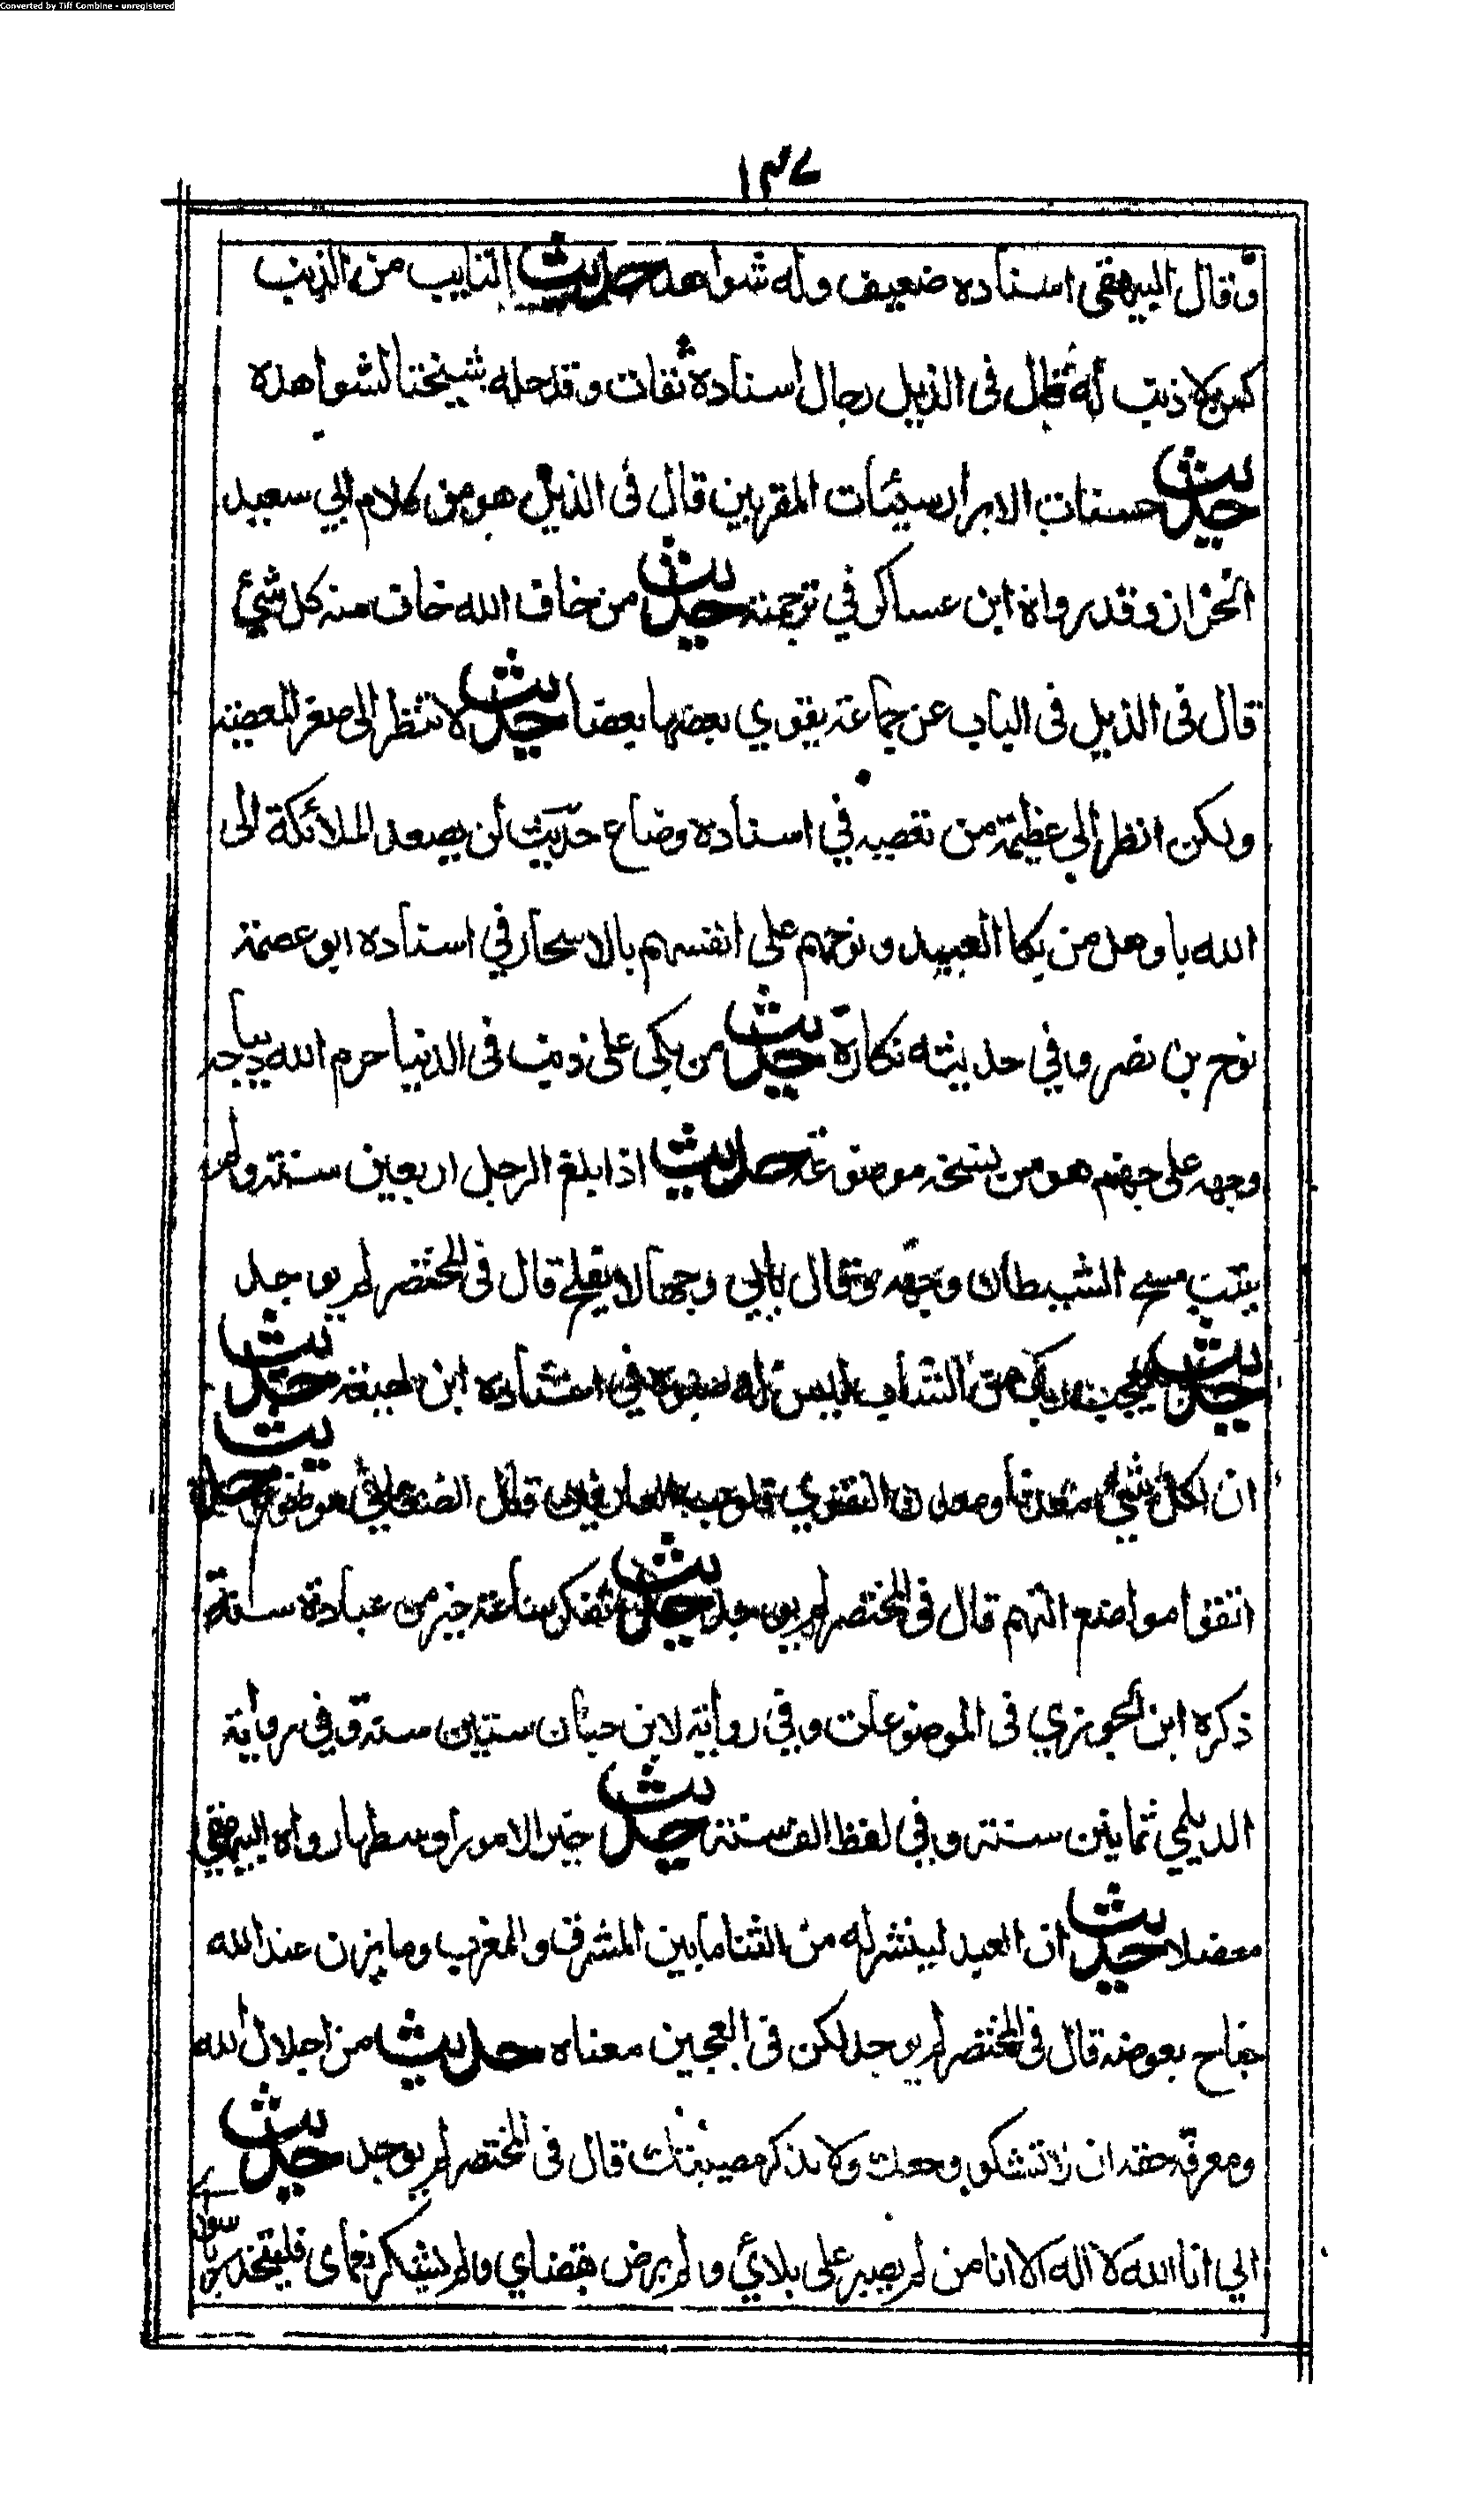 Converted by Tiff Combine - unregistered
١٣٧
وقال البيهقي اسناده ضعيف وله شواهد حديث التايب من الذنب
كمن لا ذنب له قال في الذيل رجال اسناده ثقات وقد حله شيخنا لشواهده
حديث حسنات الابرار سيئات المقربين قال في الذيل هو من كلام ابي سعيد
الخزاز وقد رواه ابن عساكر في ترجمته حديث من خاف الله خاف منه كل شيئ
قال في الذيل في الباب عن جماعة يقوي بعضها بعضا حديث لا تنظر الى صغر المعصية
ولكن انظر الى عظمة من تعصيه في اسناده وضاع حديث لن يصعد الملائكة الى
الله با وصل من بكا العبيد ونوحهم على انفسهم بالاسحار في اسناده ابو عصمة
نوح بن نصر وفي حديثه نكارة حديث من بكى على ذنب في الدنيا حرم الله ديباجة
وجهه على جهنم هو من نسخة موضوعة حديث اذا بلغ الرجل اربعين سنة ولم
يتب مسح الشيطان وجهه وقال بابي وجها لا يفلح قال في المختصر لم يوجد
حديث يعجب ربك من الشاب ليس له صبوة في اسناده ابن لهيعة حديث
ان لكل شيئ معدنا ومعدن التقوي قلوب العارفين قال الصغاني موضوع حديث
اتقوا مواضع التهم قال في المختصر لم يوجد حديث تفكر ساعة خير من عبادة سنة
ذكره ابن الجوزي في الموضوعات وفي رواية لابن حبان ستين سنة وفي رواية
الديلمي ثمانين سنة وفي لفظ الف سنة حديث خير الامور اوسطها رواه البيهقي
معضلا حديث ان العبد لينشر له من الثنا ما بين المشرق والمغرب وما يزن عند الله
جناح بعوضة قال في المختصر لم يوجد لكن في العجين معناه حديث من اجلال الله
ومعرفة حقه ان لا تشكو وجعك ولا تذكر مصيبتك قال في المختصر لم يوجد حديث
اني انا الله لا اله الا انا من لم يصبر على بلائي ولم يرض بقضاي ولم يشكر نعماي فليتخذ ربا سواي